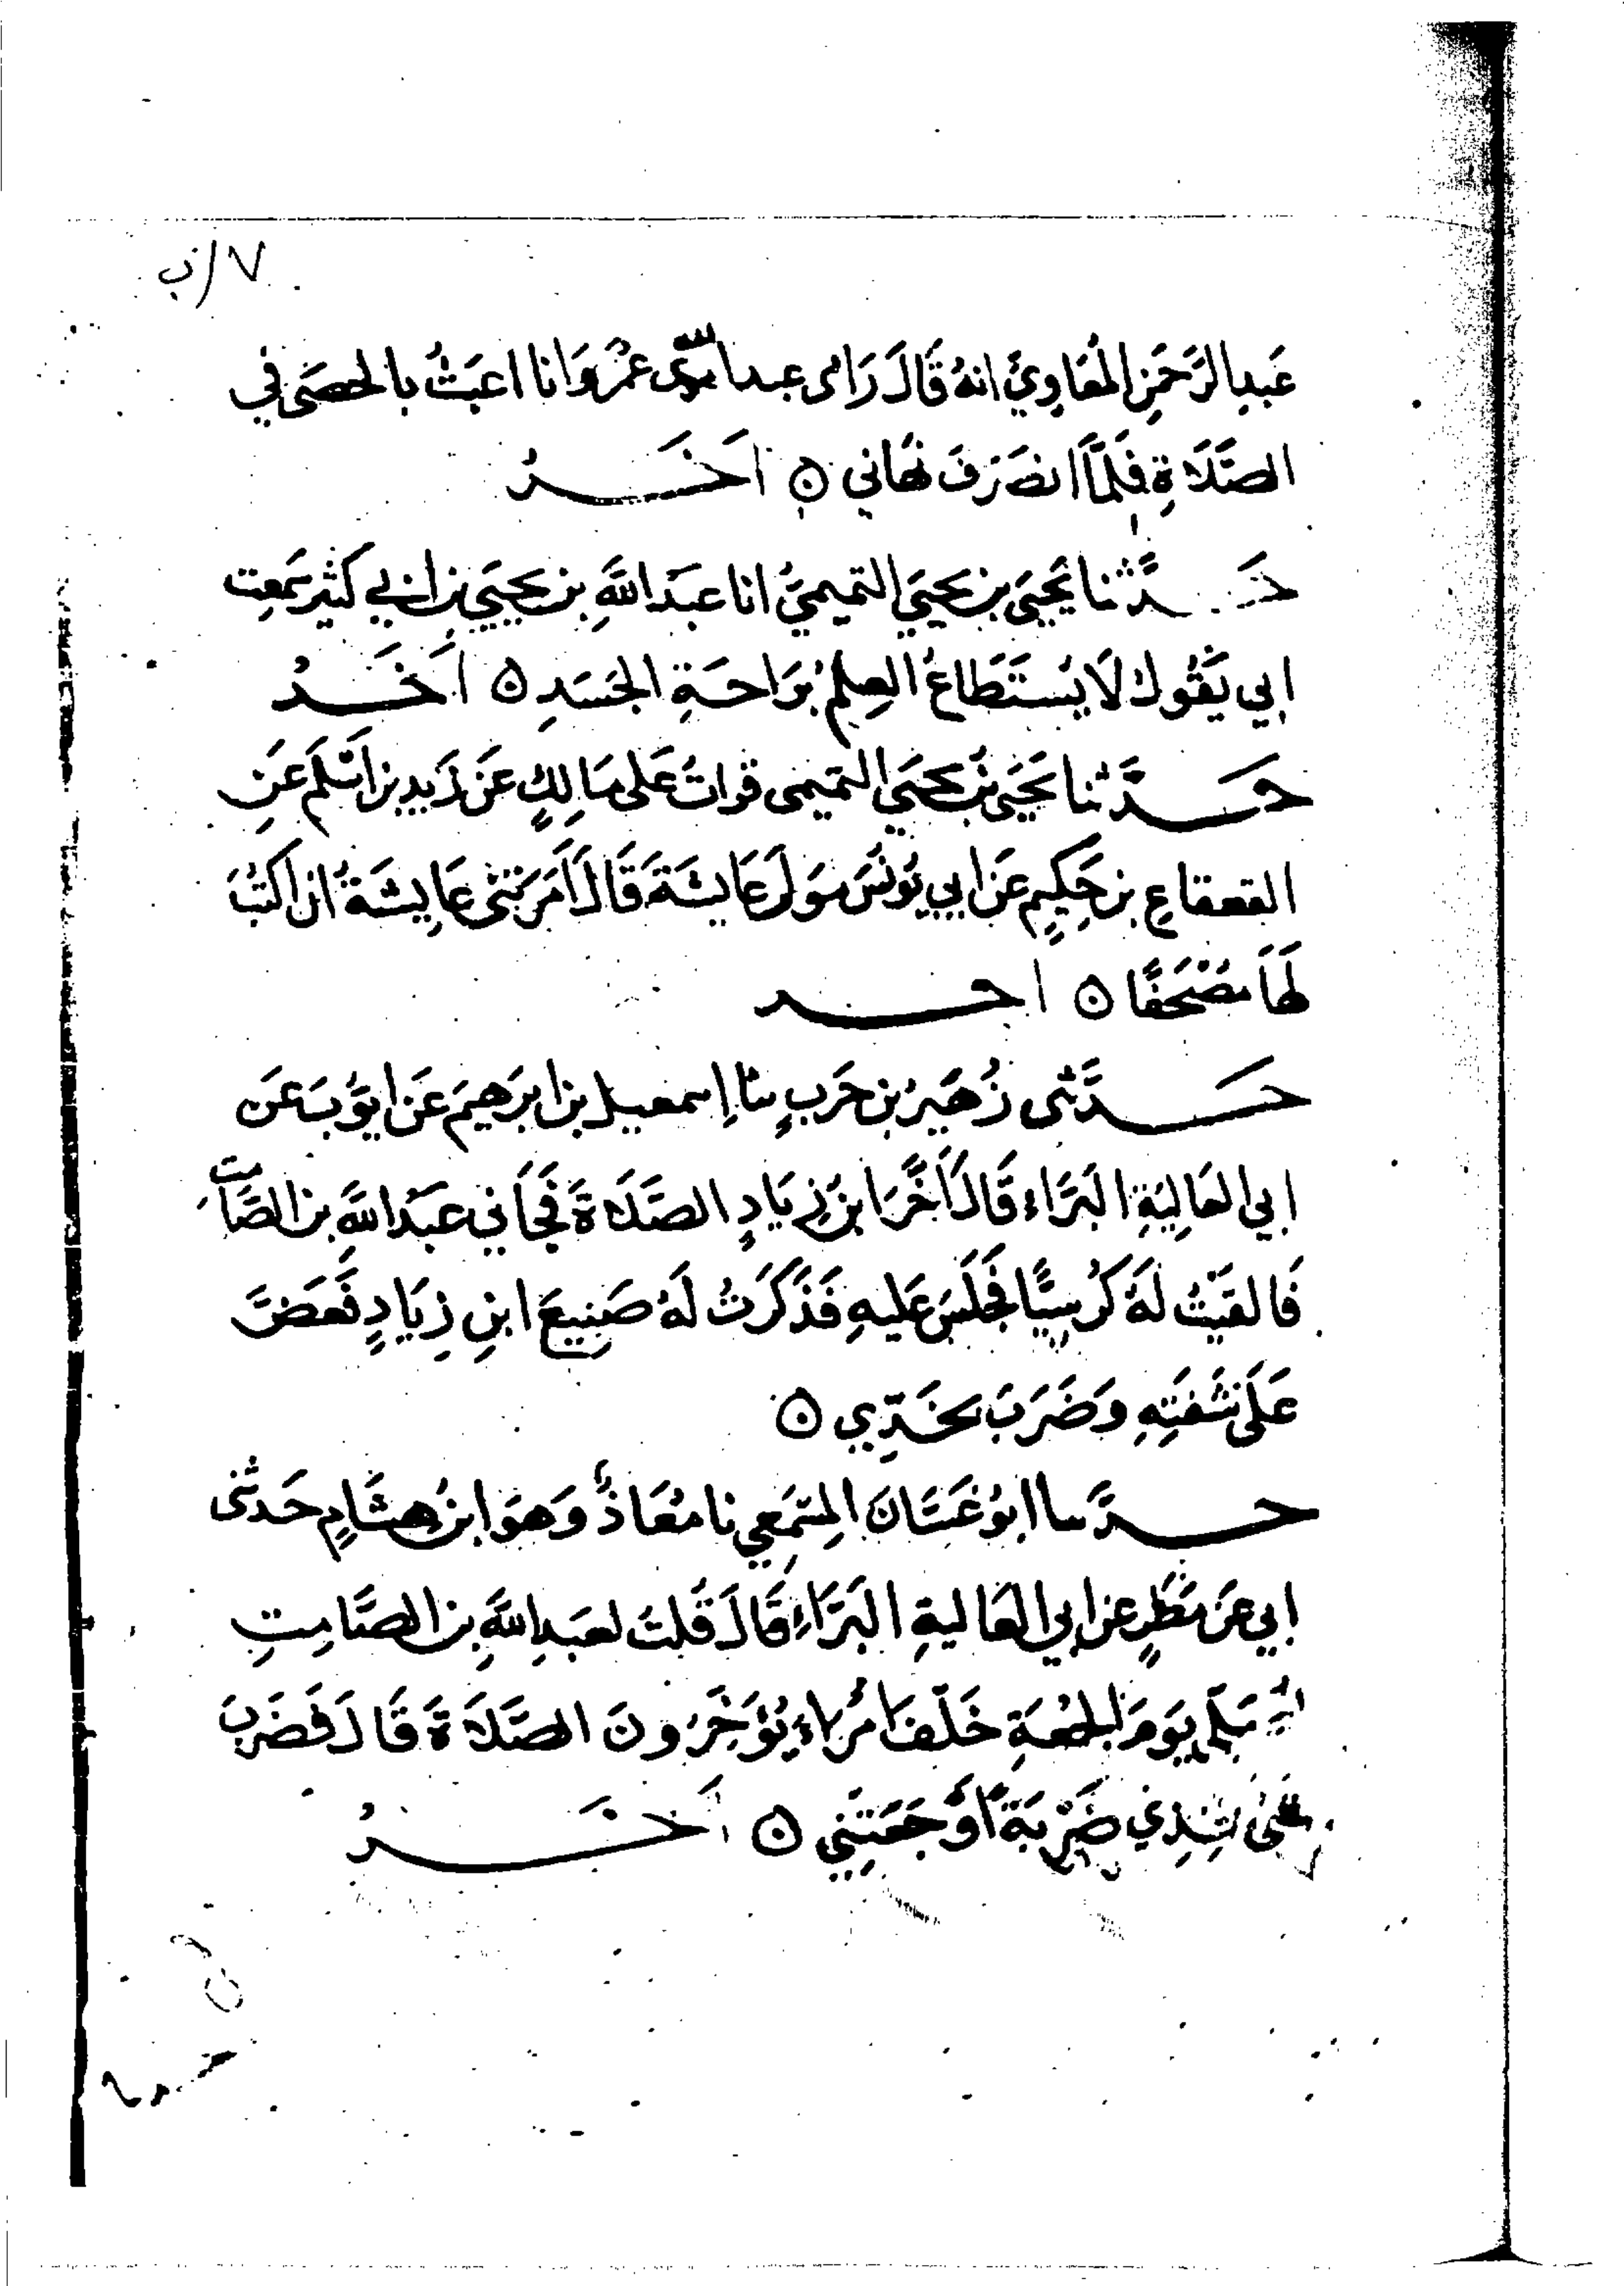 ٧/ب
عَبدِ الرَّحَمنِ المُعَاوِيّ انهُ قَالَ رَاَنى عبد الله بن عُمَرُ وَانا اعبَثُ بالحصَى في
الصَّلَاةِ فَلَمَّا انصَرَفَ نهَاني ه اَخَــرُ
حَــدَّثنا يَحيَى بن يحيَى التميميُّ انا عَبدُ اللَّهِ بن يحيَى بن ابي كثيرٍ سَمعت
ابي يَقُولُ لَا يُستَطَاعُ العِلمُ بَراحَةِ الجَسَدِ ه اَخَــرُ
حَــدَّثنا يَحيَى بنُ يحيَى التميمى قرات عَلى مَالِكٍ عَن زَيدِ بن اَسلَمَ عَنِ
القعقاعِ بن حَكِيمٍ عَن ابي يُونُسَ مَولَى عَايشَةَ قَالَ اَمَرَتنى عَايشَةُ ان اكتُبَ
لَهَا مُصْحَفًا ه اخــر
حَــدَّثنى زُهَيرُ بن حَربٍ نا إسمعيل بن ابرَهيمَ عَن ايوُّبَ عَن
ابي العَالِيَةِ البَرَّاءِ قَالَ اَخَّرَ ابنُ زِيَادٍ الصَّلَاةَ فَجَاَني عَبدُ اللَّهِ بن الصَّامت
فَالقَيتُ لَهُ كُرسِيًّا فَجَلَسَ عَليهِ فَذَكَرتُ لَهُ صَنِيعَ ابنِ زِيَادٍ فَعَضَّ
عَلَى شَفَتِهِ وَضَرَبَ فخَذِي ه
حــدَّثنا ابوُ غَسَّانَ المِسمَعِي نا مُعَاذٌ وَهوَ ابنُ هشَامٍ حَدثنى
ابي عَن مَطَرٍ عن ابي العَاليةِ البَرَّاءِ قَالَ قُلتُ لعَبدِ اللَّهِ بن الصَّامِتِ
نُصَلّي يَومَ الجُمعَةِ خَلفَ اُمَرَاءَ يُؤَخِّرُونَ الصَّلَاةَ قَالَ فَضَرَبَ
فخذِي ضَرْبَةً اَوجَعَتنِي ه اَخَــرُ